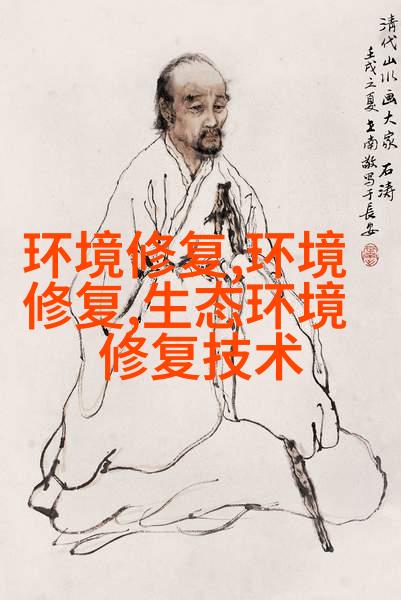 清代山水画大家 石涛
壬戌之夏 王南敬写于長安
环境修复,环境
修复,生态环境
修复技术